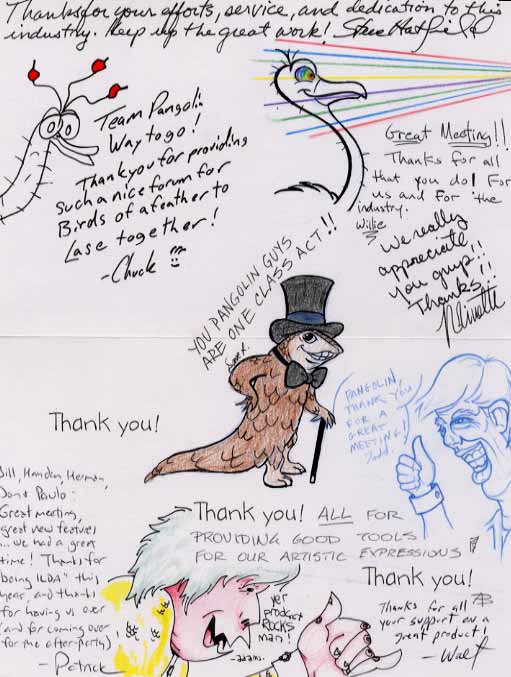 Thanks for your efforts, service, and dedication to this
industry. Keep up the great work! Steve Hatfield
Team Pangolin
Way to go!
Thank you for providing
such a nice forum for
Birds of a feather to
Lase together!
- Chuck
Great Meeting!!
Thanks for all
that you do! For
us and for the
industry.
Willie
We really
appreciate
you guys!!
Thanks!!
YOU PANGOLIN GUYS
ARE ONE CLASS ACT!!
Thank you!
PANGOLIN
THANK YOU
FOR A
GREAT
MEETING!
Todd
Bill, Hamdan, Herman,
Don & Paulo:
Great meeting,
great new features
... we had a great
time! Thanks for
"being ILDA" this
year, and thanks
for having us over
(and for coming over
for the after-party)
- Patrick
Thank you! ALL FOR
PROVIDING GOOD TOOLS
FOR OUR ARTISTIC EXPRESSIONS!
yer
product
ROCKS
man!
-adams-
Thank you!
Thanks for all
your support on a
great product!
- Walt